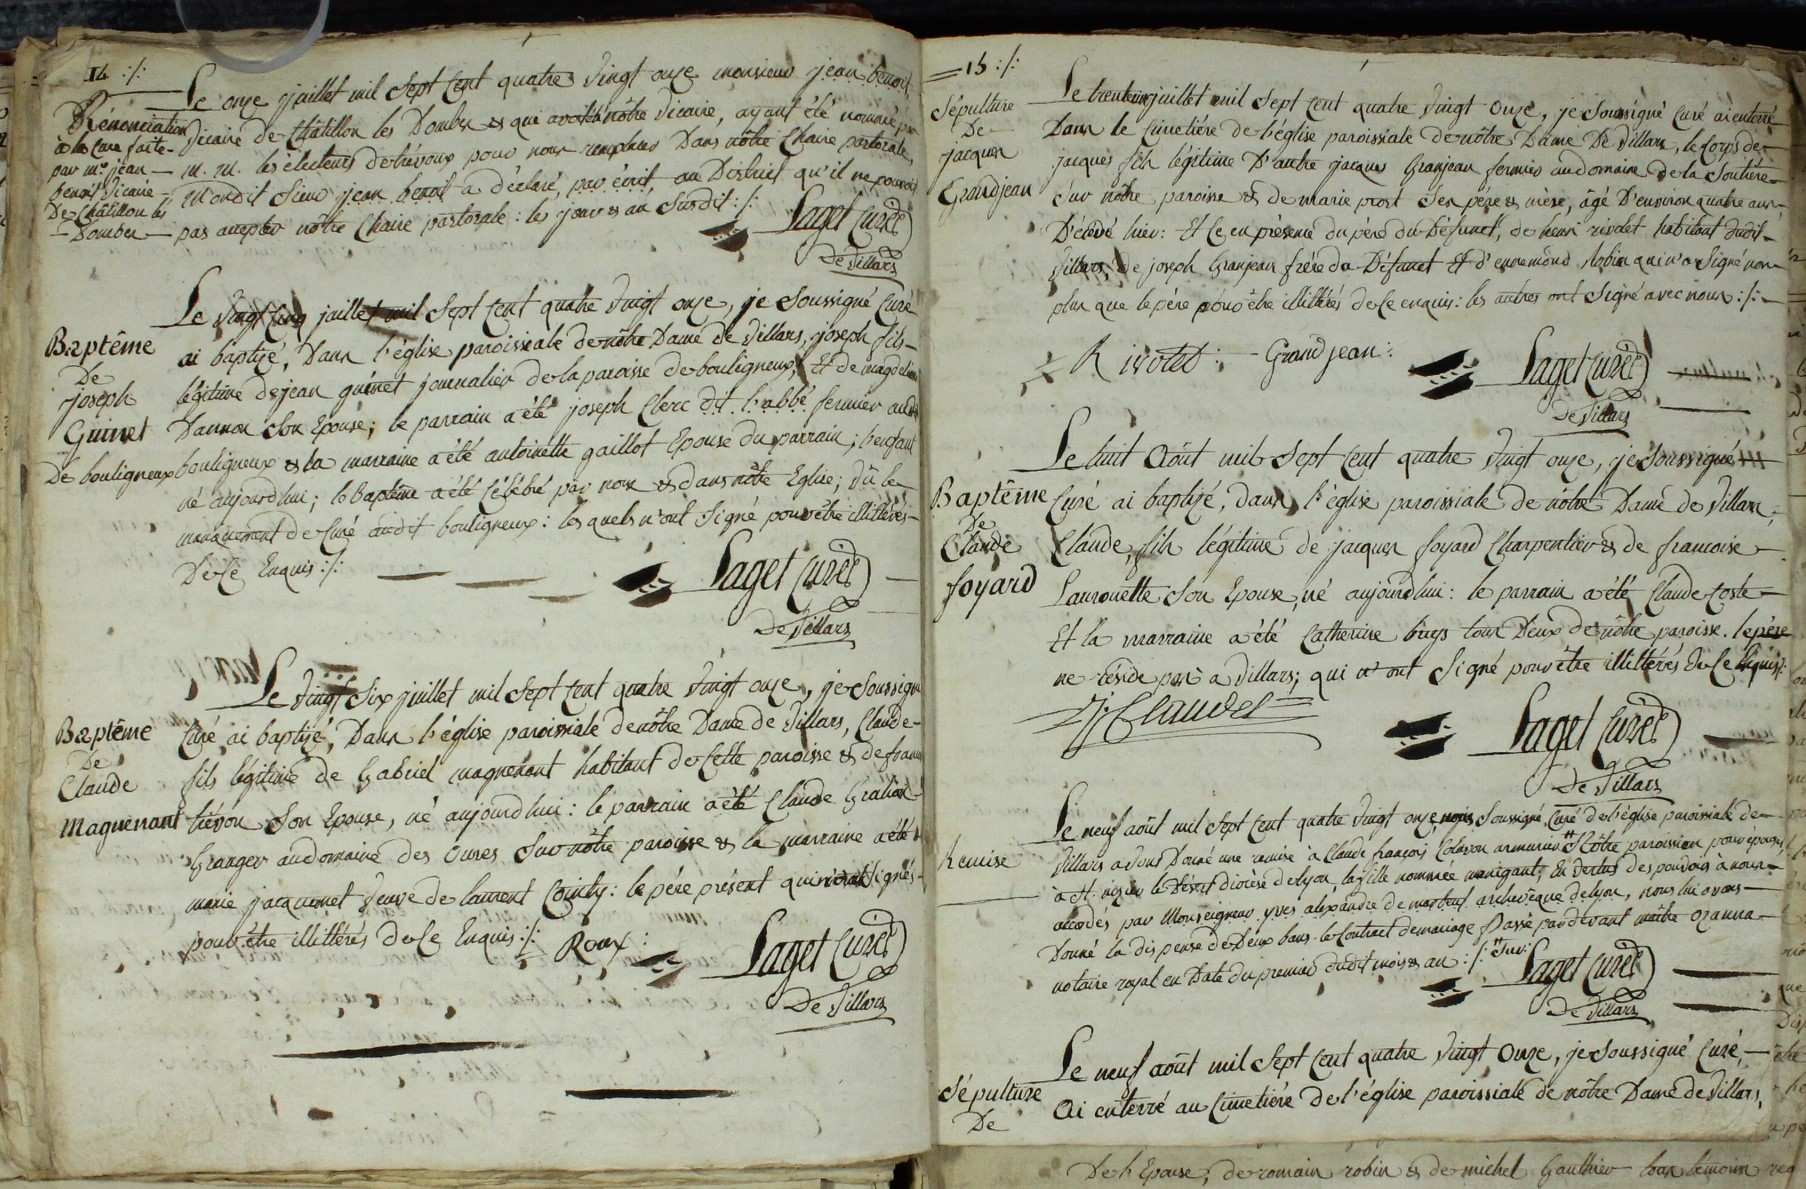 14 :/:
Rénonciation
à la Cure faite
par mr. jean
benoit Vicaire
De Châtillon lès
Dombes
Le onze juillet mil Sept Cent quatre Vingt onze monsieur jean benoit
Vicaire de Châtillon les Dombes & qui nôtre Vicaire, ayant été nommé par
M. M. les électeurs de trévoux pour nous remplacer Dans nôtre Chaire pastorale,
Mondit Sieur jean benoit a déclaré, par écrit, au District qu'il ne pouvoit
pas accepter nôtre Chaire pastorale : les jour & an Susdit :/:
Laget Curé
De Villars
Baptême
De
joseph
Guinet
De bouligneux
Le Vingt Cinq juillet mil Sept Cent quatre Vingt onze, je Soussigné Curé
ai baptizé, Dans l'église paroissiale de nôtre Dame de Villars, joseph fils
légitime de jean guinet journalier de la paroisse de bouligneux, Et de magdelaine
Dannon Son Epouse; le parrain a été joseph Clerc dit l'abbé fermier audit
bouligneux & la marraine a été antoinette gaillot Epouse du parrain; l'enfant
né aujourd'hui; le baptême a été Célébré par nous & dans nôtre Eglise; Vû le
manquement de Curé audit bouligneux : les quels n'ont Signé pour être illittérés
De Ce Enquis :/:
Laget Curé
De Villars
Baptême
De
Claude
Maguenant
Le Vingt Six juillet mil Sept Cent quatre Vingt onze, je Soussigné
Curé, ai baptizé, Dans l'église paroissiale de nôtre Dame de Villars, Claude
fils légitime de Gabriel maguenant habitant de Cette paroisse & de
triévon Son Epouse, né aujourd'hui : le parrain a été Claude
Granger au domaine des Sur nôtre paroisse & la marraine a été
marie jacquemet Veuve de laurent Cointy : le père présent qui n'ont Signés
pour être illittérés de Ce Enquis :/: Roux :
Laget Curé
De Villars
15 :/:
Sépulture
De
jacques
Grandjean
Le trente juillet mil Sept Cent quatre Vingt onze, je Soussigné Curé ai enterré
Dans le Cimetière de l'église paroissiale de nôtre Dame De Villars, le Corps de
jacques fils légitime D'autre jacques Granjean fermier au domaine de la Soutière
Sur nôtre paroisse & de marie prost Ses père & mère, âgé D'environ quatre ans
Décédé hier : Et Ce en présence du père du Défunct, de henri rivolet habitant dudit
Villars, De joseph Granjean frère du Défunct Et d'ennemond Robin qui n'a Signé non
plus que le père pour être illittérés de Ce enquis : les autres ont Signé avec nous :/:
Rivolet : Grandjean :
Laget Curé
De Villars
Baptême
De
Claude
foyard
Le huit Août mil Sept Cent quatre Vingt onze, je Soussigné
Curé ai baptizé, dans l'église paroissiale de nôtre Dame de Villars,
Claude, fils légitime de jacques foyard Charpentier & de francoise
Laurouette Son Epouse, né aujourd'hui : le parrain a été Claude Coste
Et la marraine a été Catherine buys tous Deux de nôtre paroisse. le père
ne réside pas à Villars; qui n'ont Signé pour être illittérés de Ce Enquis :
Claudel
Laget Curé
De Villars
Remise
Le neuf août mil Sept Cent quatre Vingt onze, nous Soussigné, Curé de l'église paroissiale de
Villars avons Donné une remise à Claude françois Colavon armurier Nôtre paroissien pour épouser
à St. nizier le Désert diocèse de lyon, la fille nommée manigant, En vertus des pouvoirs à nous
accordés par Monseigneur yves alexandre de marbeuf archevêque de lyon, nous lui avons
Donné la dispense de Deux bans. le Contract de mariage Passé pardevant maître ozanna
notaire royal en Date du premier dudit mois & an :/:
Laget Curé
De Villars
Sépulture
De
Le neuf août mil Sept Cent quatre Vingt Onze, je Soussigné Curé,
Ai enterré au Cimetière de l'église paroissiale de nôtre Dame de Villars,
De l'Epouse, de romain robin & de michel Gauthier tous témoins